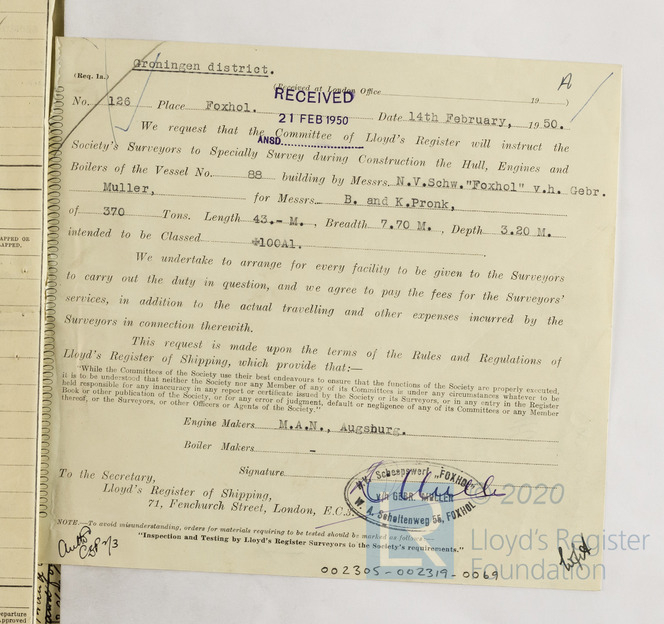 Groningen district.
(Req. 1a.)
(Received at London Office 19 )
A
RECEIVED
21 FEB 1950
ANSD
No. 126 Place Foxhol. Date 14th February, 1950.
We request that the Committee of Lloyd's Register will instruct the
Society's Surveyors to Specially Survey during Construction the Hull, Engines and
Boilers of the Vessel No. 88 building by Messrs. N.V.Schw."Foxhol" v.h. Gebr.
Muller, for Messrs. B. and K.Pronk,
of 370 Tons. Length 43.- M. , Breadth 7.70 M. , Depth 3.20 M.
intended to be Classed +100A1.
We undertake to arrange for every facility to be given to the Surveyors
to carry out the duty in question, and we agree to pay the fees for the Surveyors'
services, in addition to the actual travelling and other expenses incurred by the
Surveyors in connection therewith.
This request is made upon the terms of the Rules and Regulations of
Lloyd's Register of Shipping, which provide that:—
"While the Committees of the Society use their best endeavours to ensure that the functions of the Society are properly executed,
it is to be understood that neither the Society nor any Member of any of its Committees is under any circumstances whatever to be
held responsible for any inaccuracy in any report or certificate issued by the Society or its Surveyors, or in any entry in the Register
Book or other publication of the Society, or for any error of judgment, default or negligence of any of its Committees or any Member
thereof, or the Surveyors, or other Officers or Agents of the Society."
Engine Makers M.A.N., Augsburg.
Boiler Makers -
Signature
N.V. Scheepswerf „FOXHOL"
v/h GEBR. MULLER
W. A. Scholtenweg 5a, FOXHOL
To the Secretary,
Lloyd's Register of Shipping,
71, Fenchurch Street, London, E.C.3.
NOTE.—To avoid misunderstanding, orders for materials requiring to be tested should be marked as follows—
"Inspection and Testing by Lloyd's Register Surveyors to the Society's requirements."
002305-002319-0069
© 2020
Lloyd's Register
Foundation
APPED OR
LAPPED.
eparture
pproved